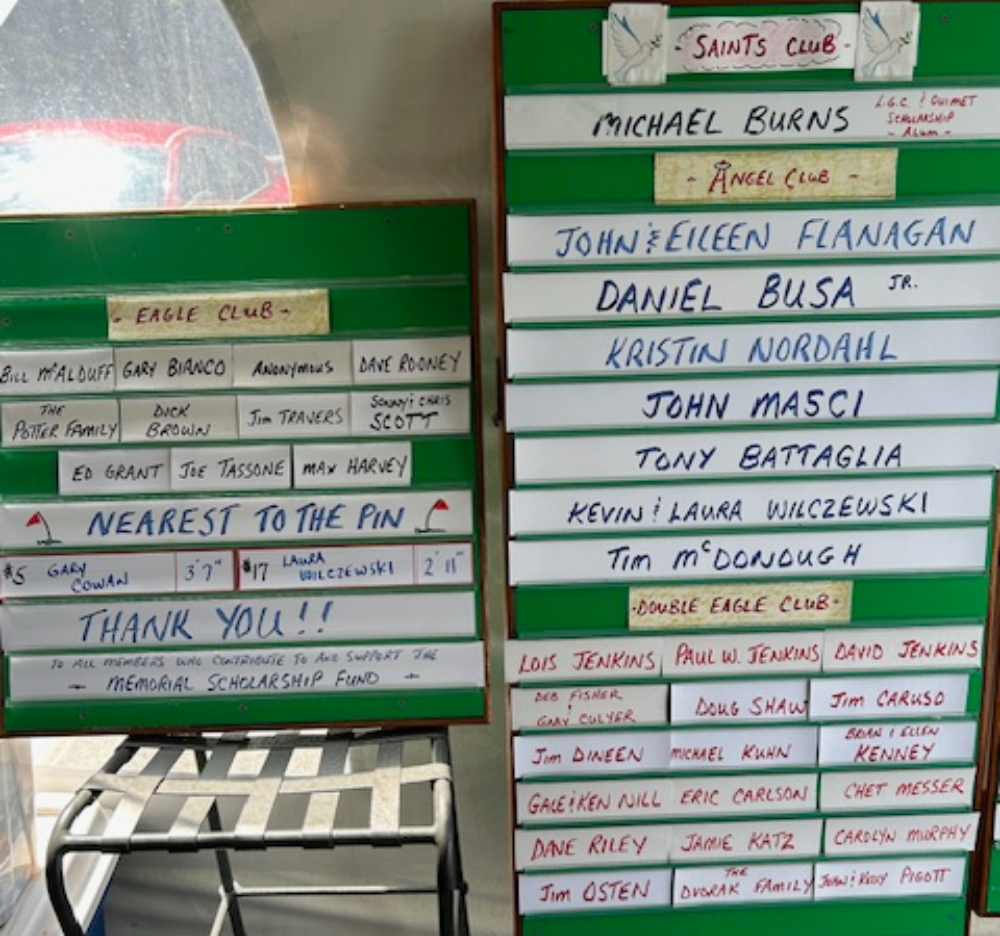 - EAGLE CLUB -
BILL McALDUFF GARY BIANCO ANONYMOUS DAVE ROONEY
THE POTTER FAMILY DICK BROWN Jim TRAVERS SONNY & CHRIS SCOTT
ED GRANT JOE TASSONE MAX HARVEY
NEAREST TO THE PIN
#5 GARY COWAN 3'7" #17 LAURA WILCZEWSKI 2'11"
THANK YOU!!
TO ALL MEMBERS WHO CONTRIBUTE TO AND SUPPORT THE
- MEMORIAL SCHOLARSHIP FUND -
- SAINTS CLUB -
MICHAEL BURNS L.G.C. & OUIMET SCHOLARSHIP - ALUM -
- ANGEL CLUB -
JOHN & EILEEN FLANAGAN
DANIEL BUSA JR.
KRISTIN NORDAHL
JOHN MASCI
TONY BATTAGLIA
KEVIN & LAURA WILCZEWSKI
Tim McDONOUGH
- DOUBLE EAGLE CLUB -
LOIS JENKINS PAUL W. JENKINS DAVID JENKINS
DEB FISHER & GARY CULYER DOUG SHAW Jim CARUSO
Jim DINEEN MICHAEL KUHN BRIAN & ELLEN KENNEY
GALE & KEN NILL ERIC CARLSON CHET MESSER
DAVE RILEY JAMIE KATZ CAROLYN MURPHY
Jim OSTEN THE DVORAK FAMILY JOHN & KELLY PIGOTT